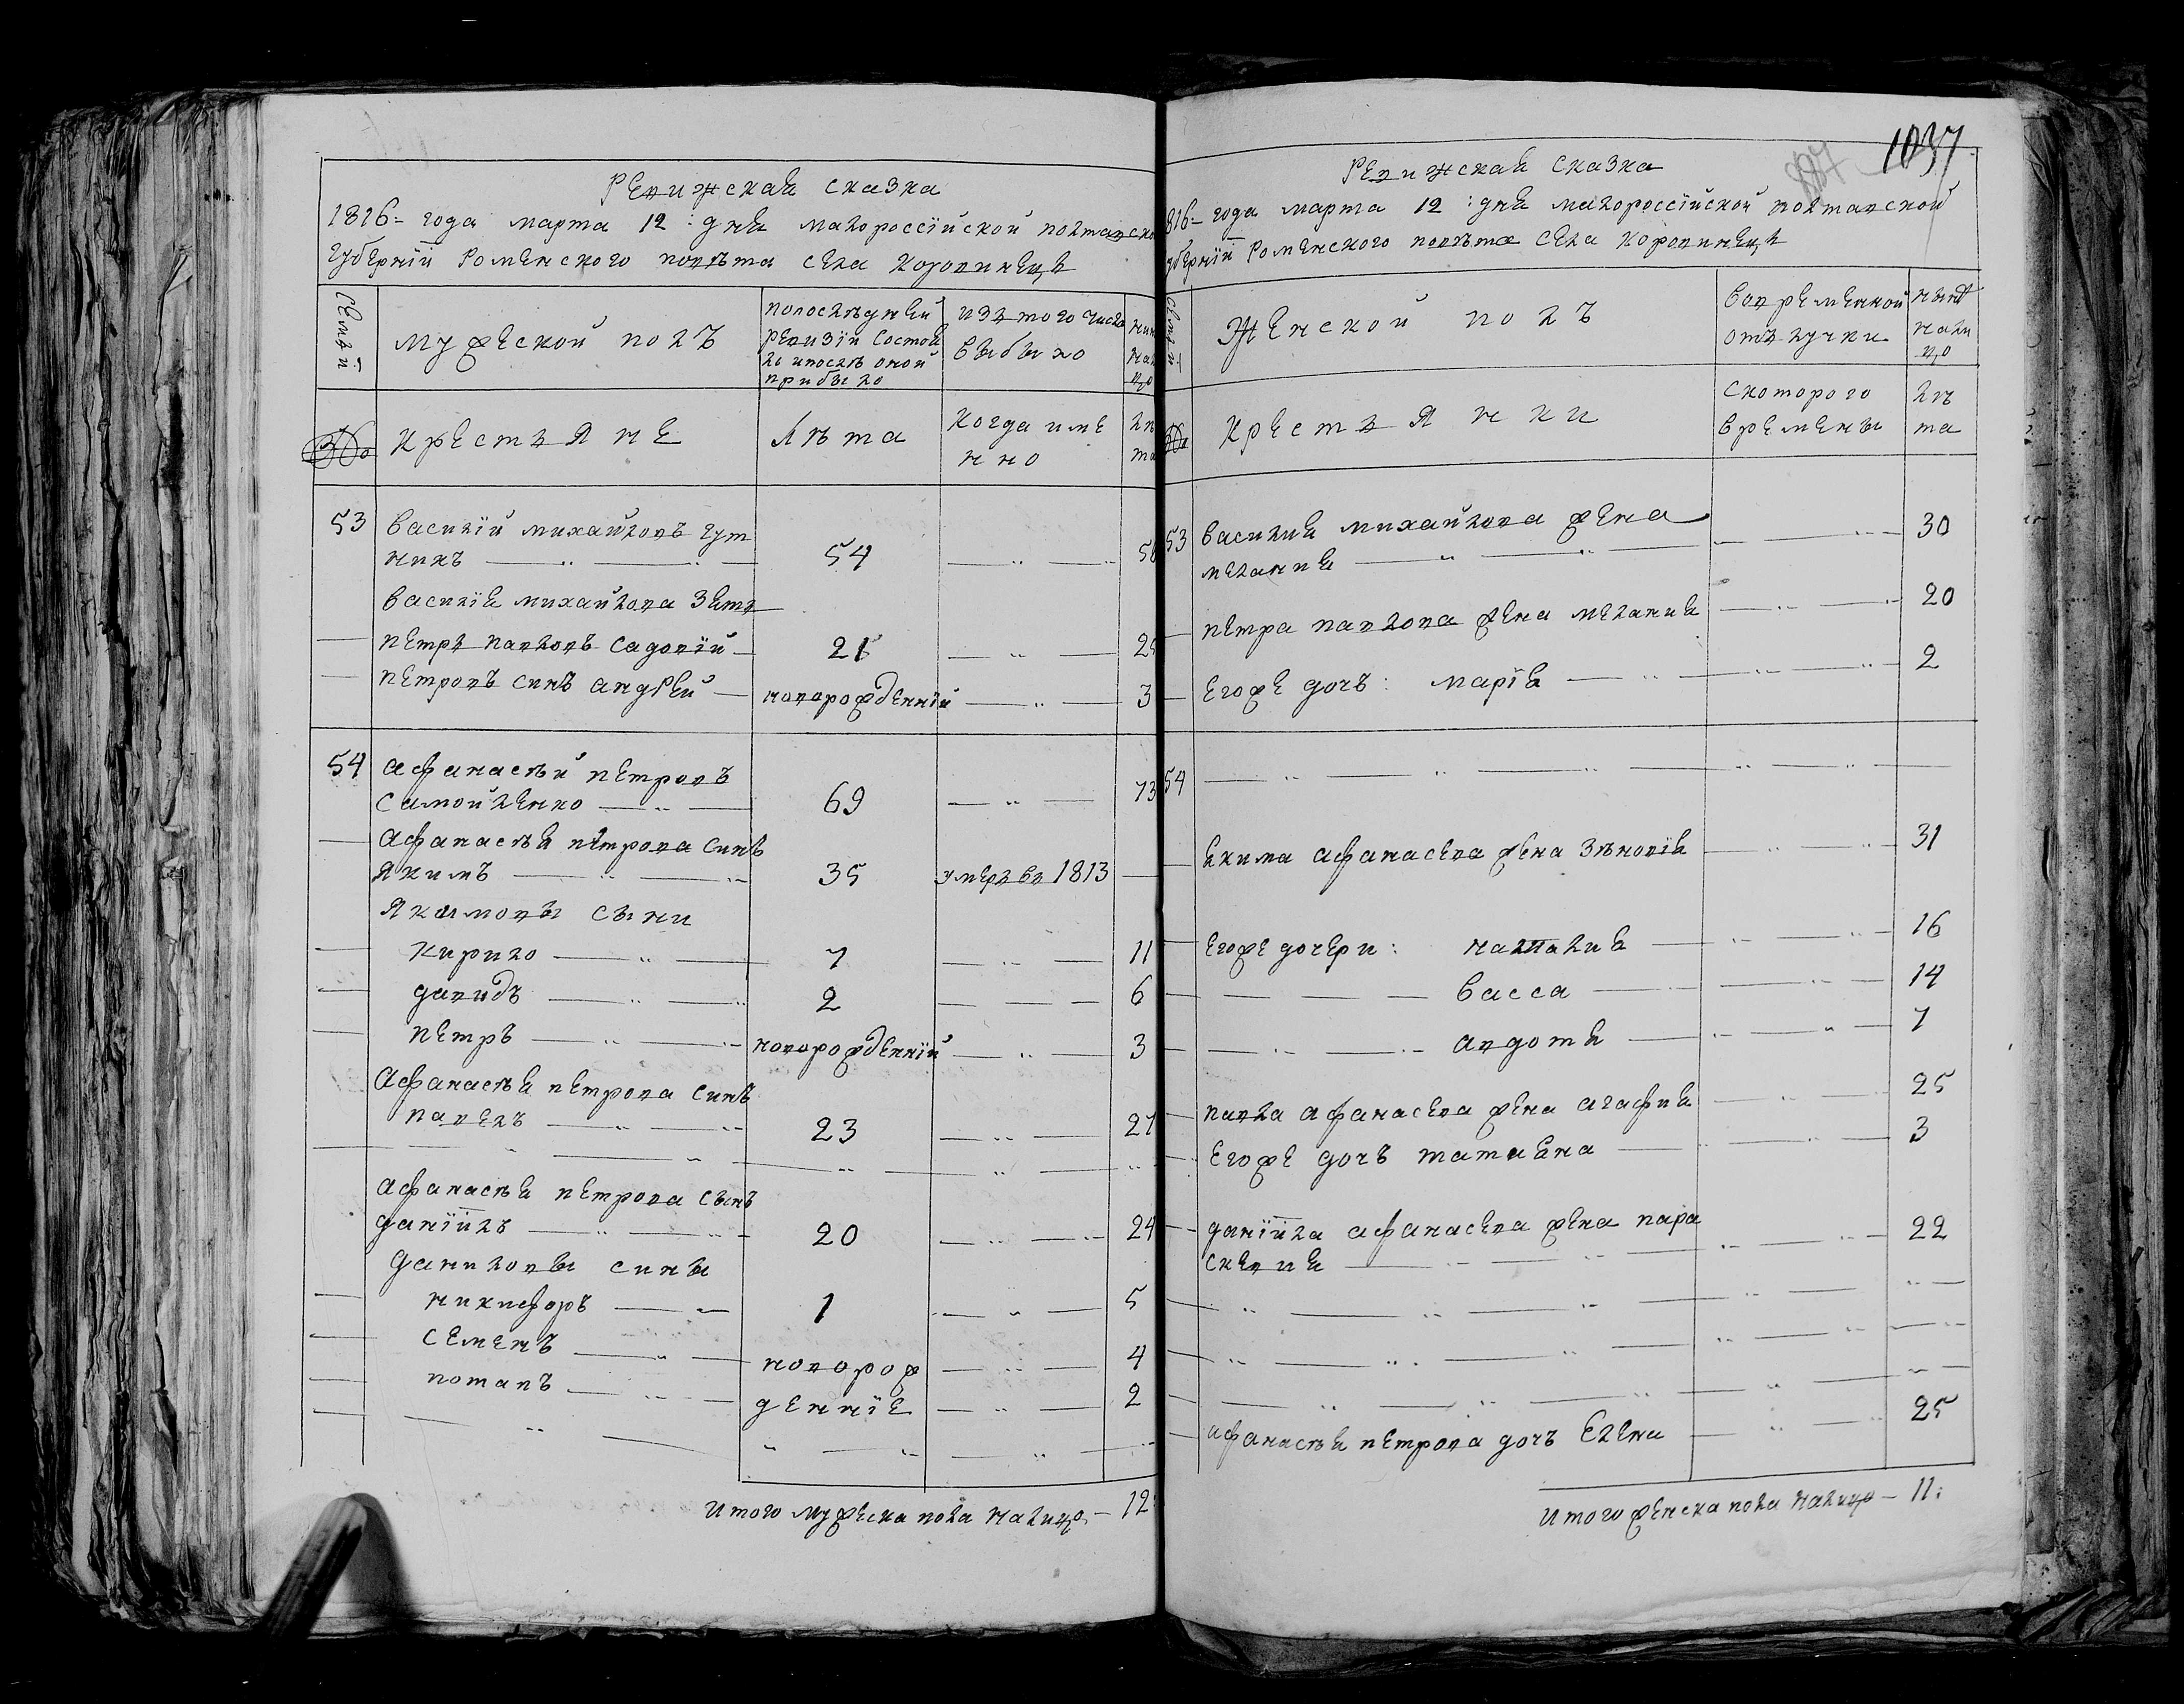 Ревижская сказка
1816= года марта 12: дня малороссїйской полтавско
губернїй Роменского повѣта села Коровинецъ
Семьй
мужеской полъ
пополѣдней
ревизїй состоя
ло ипослѣ оной
прибыло
изъ того числа
выбыло
нын
нал
цо
№
Крестьяне
Лѣта
Когда име
нно
лѣ
та
53 Василїй михайловъ гут
никъ 54 58
василїя михайлова зять
петръ павловъ садовїй 21 25
петровъ синъ андрей новорожденнїй 3
54 афанасѣй петровъ
самойленко 69 73
афанасѣя петрова синъ
Якимъ 35 умеръ въ 1813
Якимовы сыни
кирило 7 11
давидъ 2 6
петръ новорожденнїй 3
Афанасѣя петрова синъ
павелъ 23 27
афанасѣя петрова сынъ
данїйлъ 20 24
Даниловы сины
никифоръ 1 5
семенъ новорож 4
потапъ деннїе 2
Итого мужеска пола налицо – 12:
1037
Ревижская сказка
816= года марта 12: дня малороссїйской полтавской
губернїй Роменского повѣта села Коровинецъ
Семьй
Женской полъ
вовременной
отълучки
нынѣ
нали
цо
№
Крестьянки
скоторого
времены
лѣ
та
53 василия михайлова жена
мелания 30
петра павлова жена мелания 20
Егоже дочъ: марїя 2
54
якима афанасева жена зѣновїя 31
Егоже дочери: наталия 16
васса 14
авдотя 7
павла афанасева жена агафия 25
Егоже дочъ татияна 3
данїйла афанасева жена пара
скевия 22
афанасѣя петрова дочъ Елена 25
Итого женска пола налицо – 11: